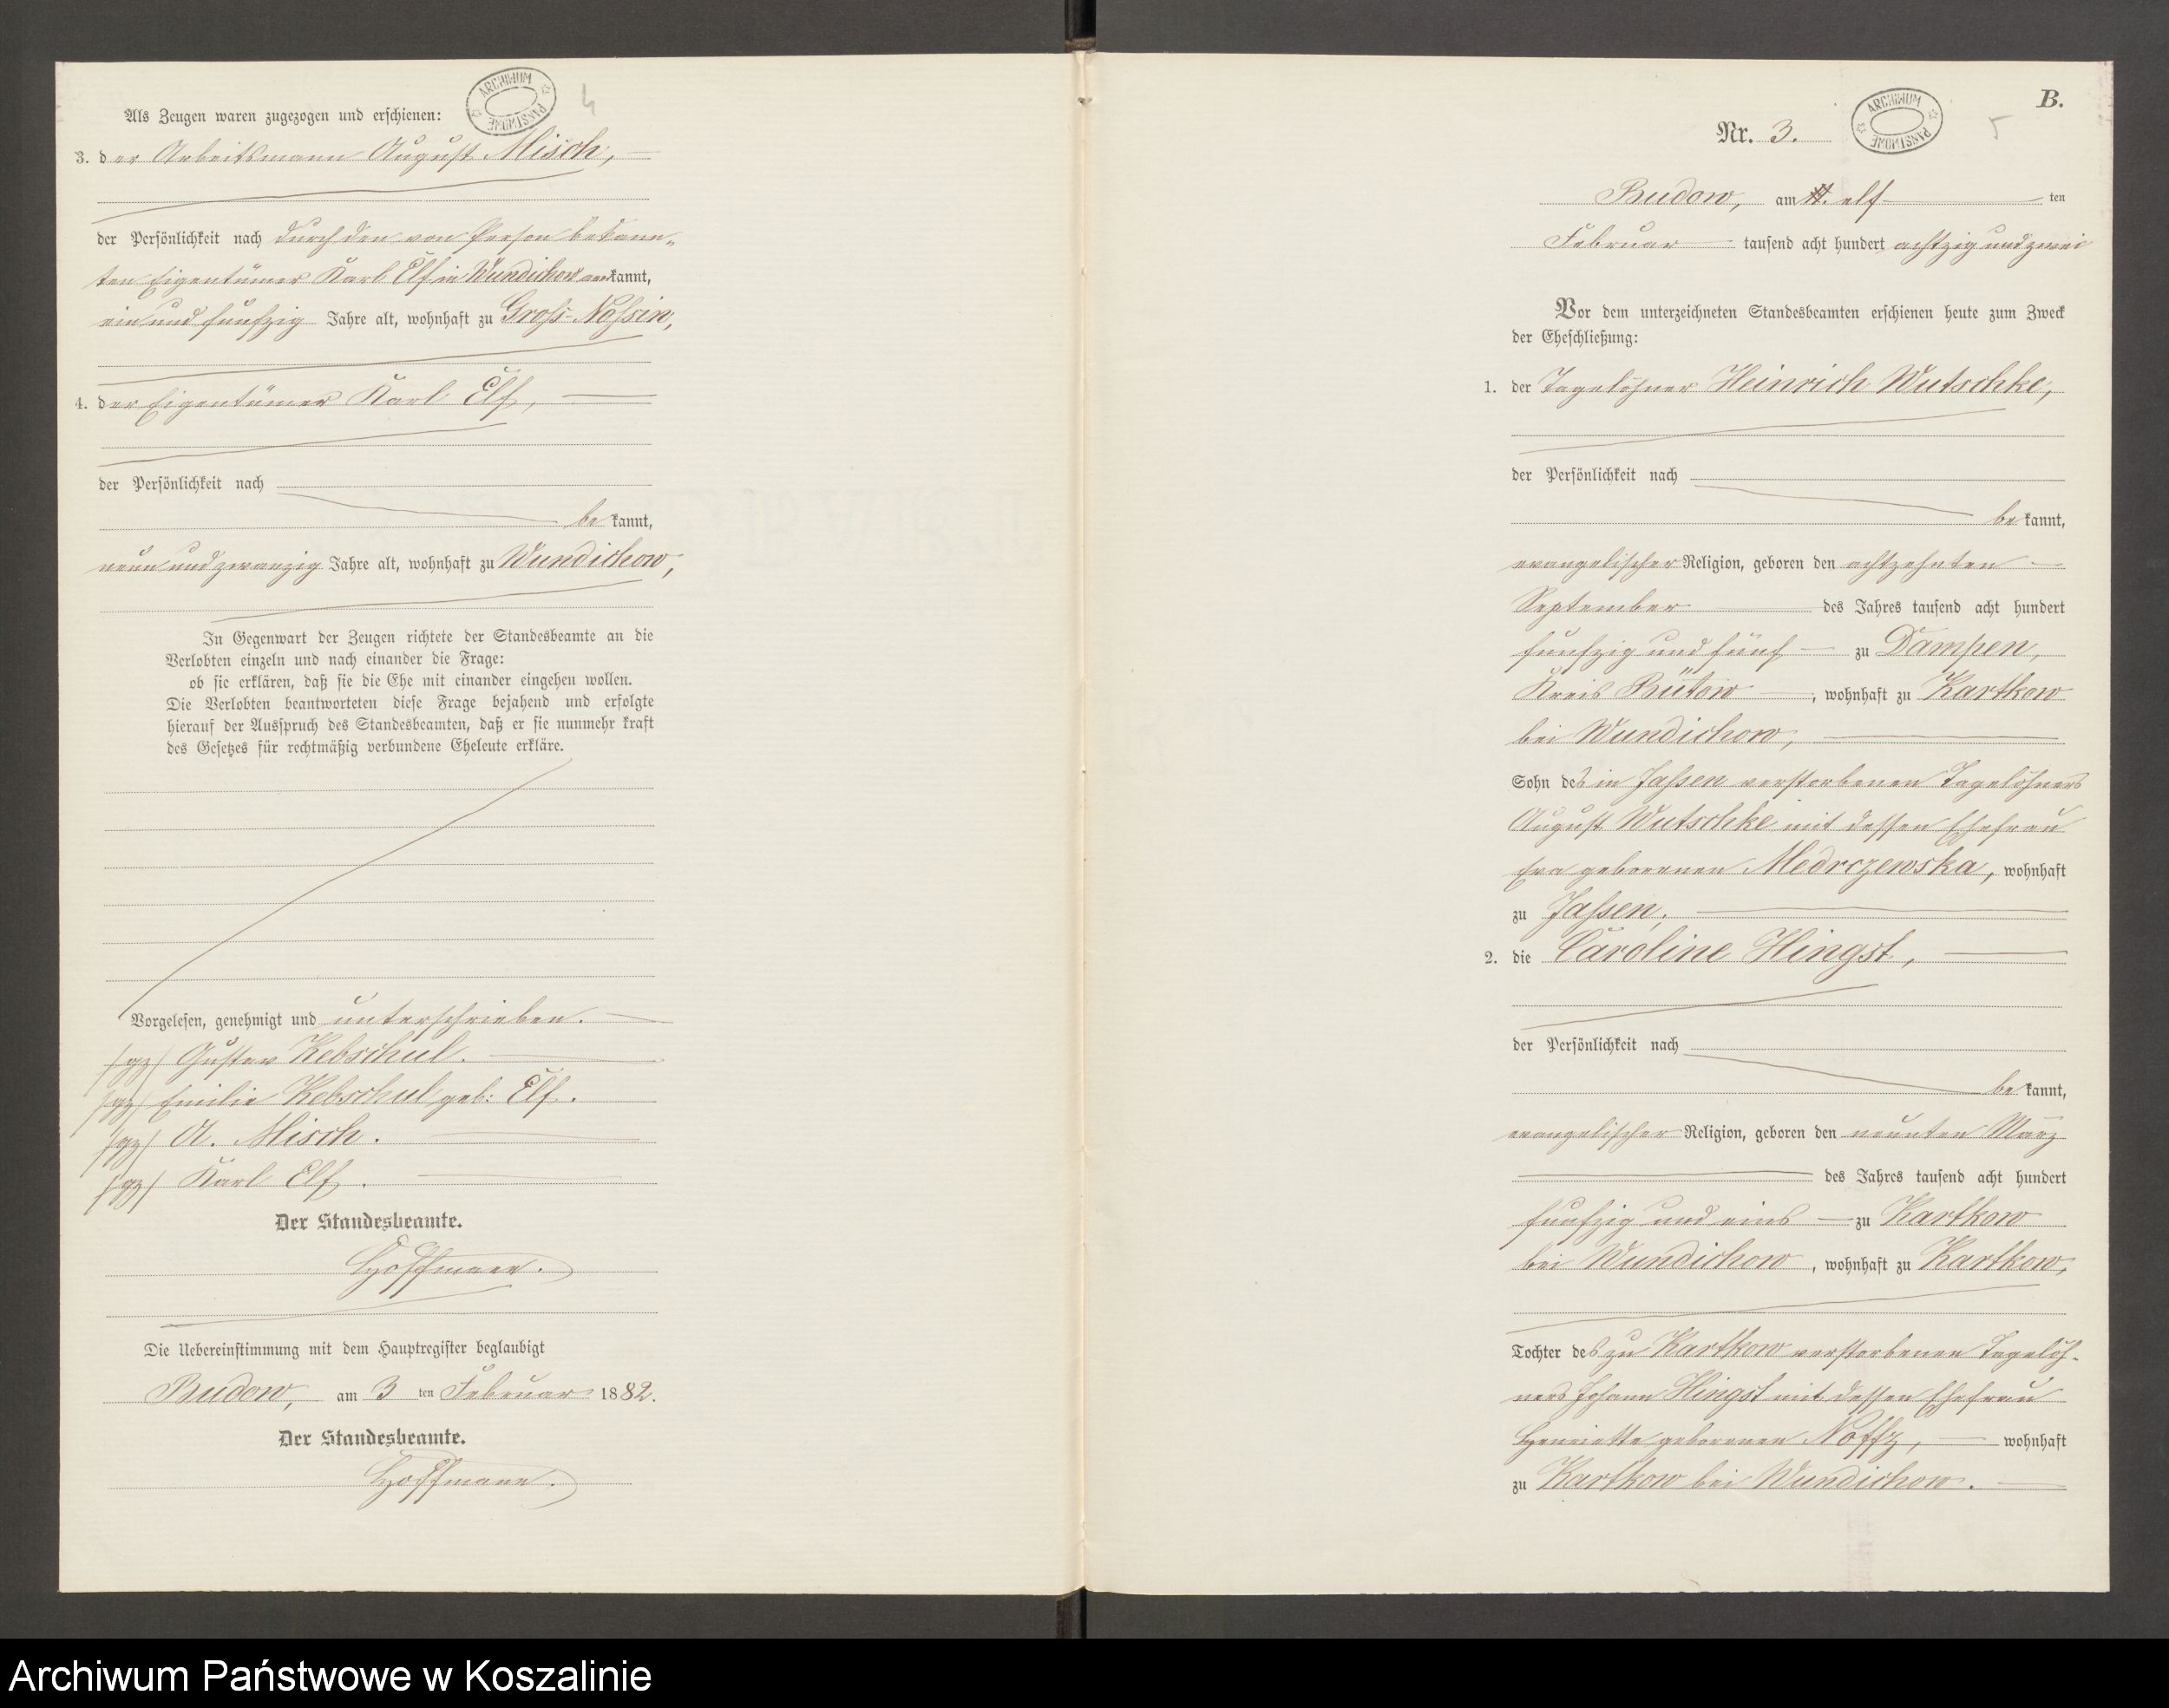 ARCHIWUM PAŃSTWOWE
4
Als Zeugen waren zugezogen und erschienen:
3. der Arbeitsmann August Misch,
der Persönlichkeit nach durch den von Person bekann-
ten Eigentümer Karl Elf in Wundichow anerkannt,
ein und fünfzig Jahre alt, wohnhaft zu Groß-Noßin,
4. der Eigentümer Karl Elf,
der Persönlichkeit nach
bekannt,
neun und zwanzig Jahre alt, wohnhaft zu Wundichow,
In Gegenwart der Zeugen richtete der Standesbeamte an die
Verlobten einzeln und nach einander die Frage:
ob sie erklären, daß sie die Ehe mit einander eingehen wollen.
Die Verlobten beantworteten diese Frage bejahend und erfolgte
hierauf der Ausspruch des Standesbeamten, daß er sie nunmehr kraft
des Gesetzes für rechtmäßig verbundene Eheleute erkläre.
Vorgelesen, genehmigt und unterschrieben.
/gz/ Gustav Kebschul.
/gz/ Emilie Kebschul geb: Elf.
/gz/ A. Misch.
/gz/ Karl Elf.
Der Standesbeamte.
Hoffmann.
Die Uebereinstimmung mit dem Hauptregister beglaubigt
Budow, am 3 ten Februar 1882.
Der Standesbeamte.
Hoffmann.
B.
ARCHIWUM PAŃSTWOWE
5
Nr. 3.
Budow, am elf ten
Februar tausend acht hundert achtzig und zwei
Vor dem unterzeichneten Standesbeamten erschienen heute zum Zweck
der Eheschließung:
1. der Tagelöhner Heinrich Wutschke,
der Persönlichkeit nach
bekannt,
evangelischer Religion, geboren den achtzehnten
September des Jahres tausend acht hundert
fünfzig und fünf zu Dampen,
Kreis Bütow, wohnhaft zu Kartkow
bei Wundichow,
Sohn des in Jaßen verstorbenen Tagelöhners
August Wutschke mit dessen Ehefrau
Eva geborenen Medrczewska, wohnhaft
zu Jaßen,
2. die Caroline Hingst,
der Persönlichkeit nach
bekannt,
evangelischer Religion, geboren den neunten März
des Jahres tausend acht hundert
fünfzig und eins zu Kartkow
bei Wundichow, wohnhaft zu Kartkow,
Tochter des zu Kartkow verstorbenen Tagelöh-
ners Johann Hingst mit dessen Ehefrau
Henriette geborenen Noffz, wohnhaft
zu Kartkow bei Wundichow.
Archiwum Państwowe w Koszalinie